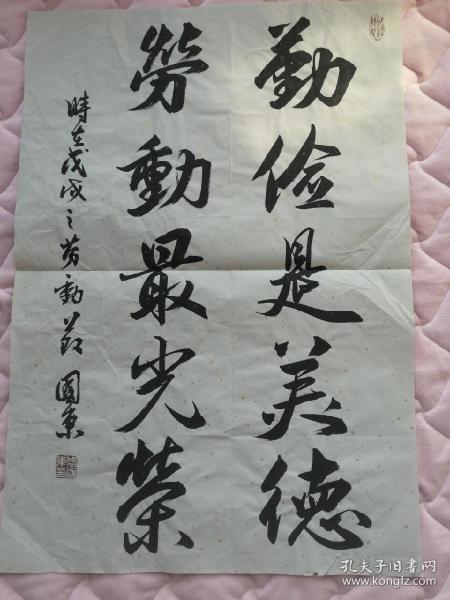 勤俭是美德
勞動最光榮
時在戊戌之劳動节 國東
孔夫子旧书网
www.kongfz.com